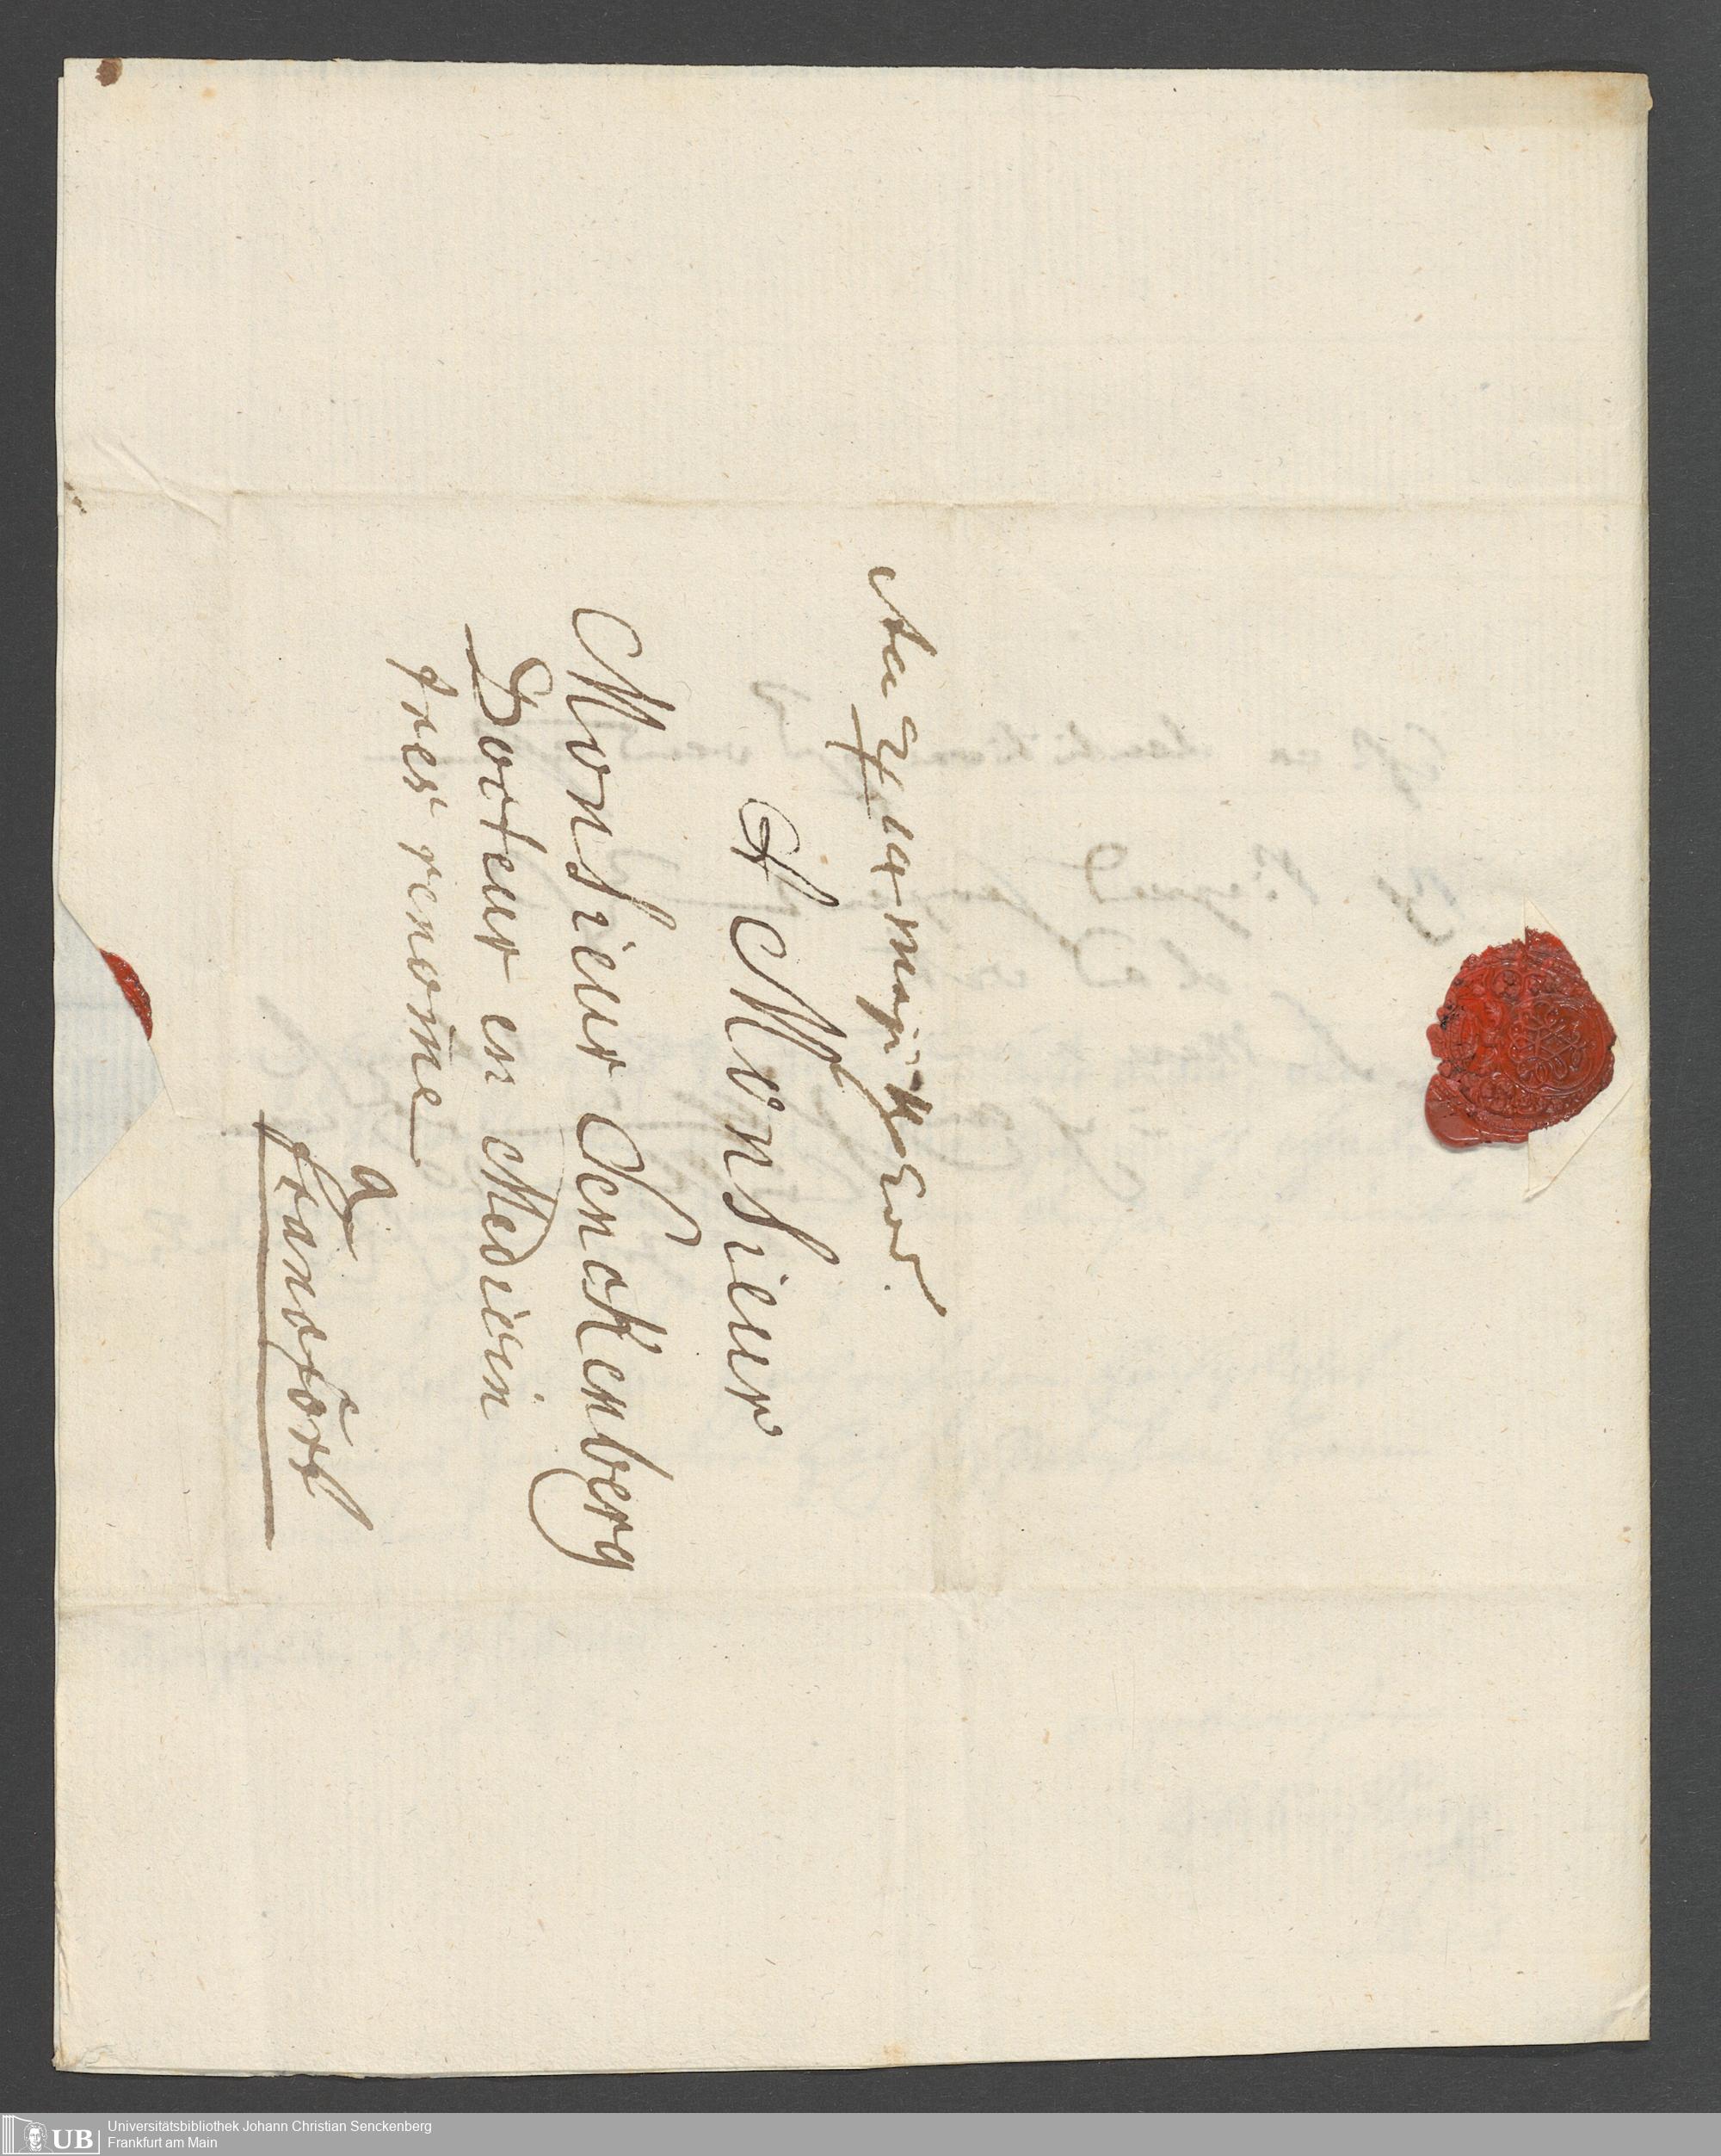 A Monsieur
Monsieur Senckenberg
Docteur en Medicin
tres renom̄e
a
francfort
Universitätsbibliothek Johann Christian Senckenberg
Frankfurt am Main
UB